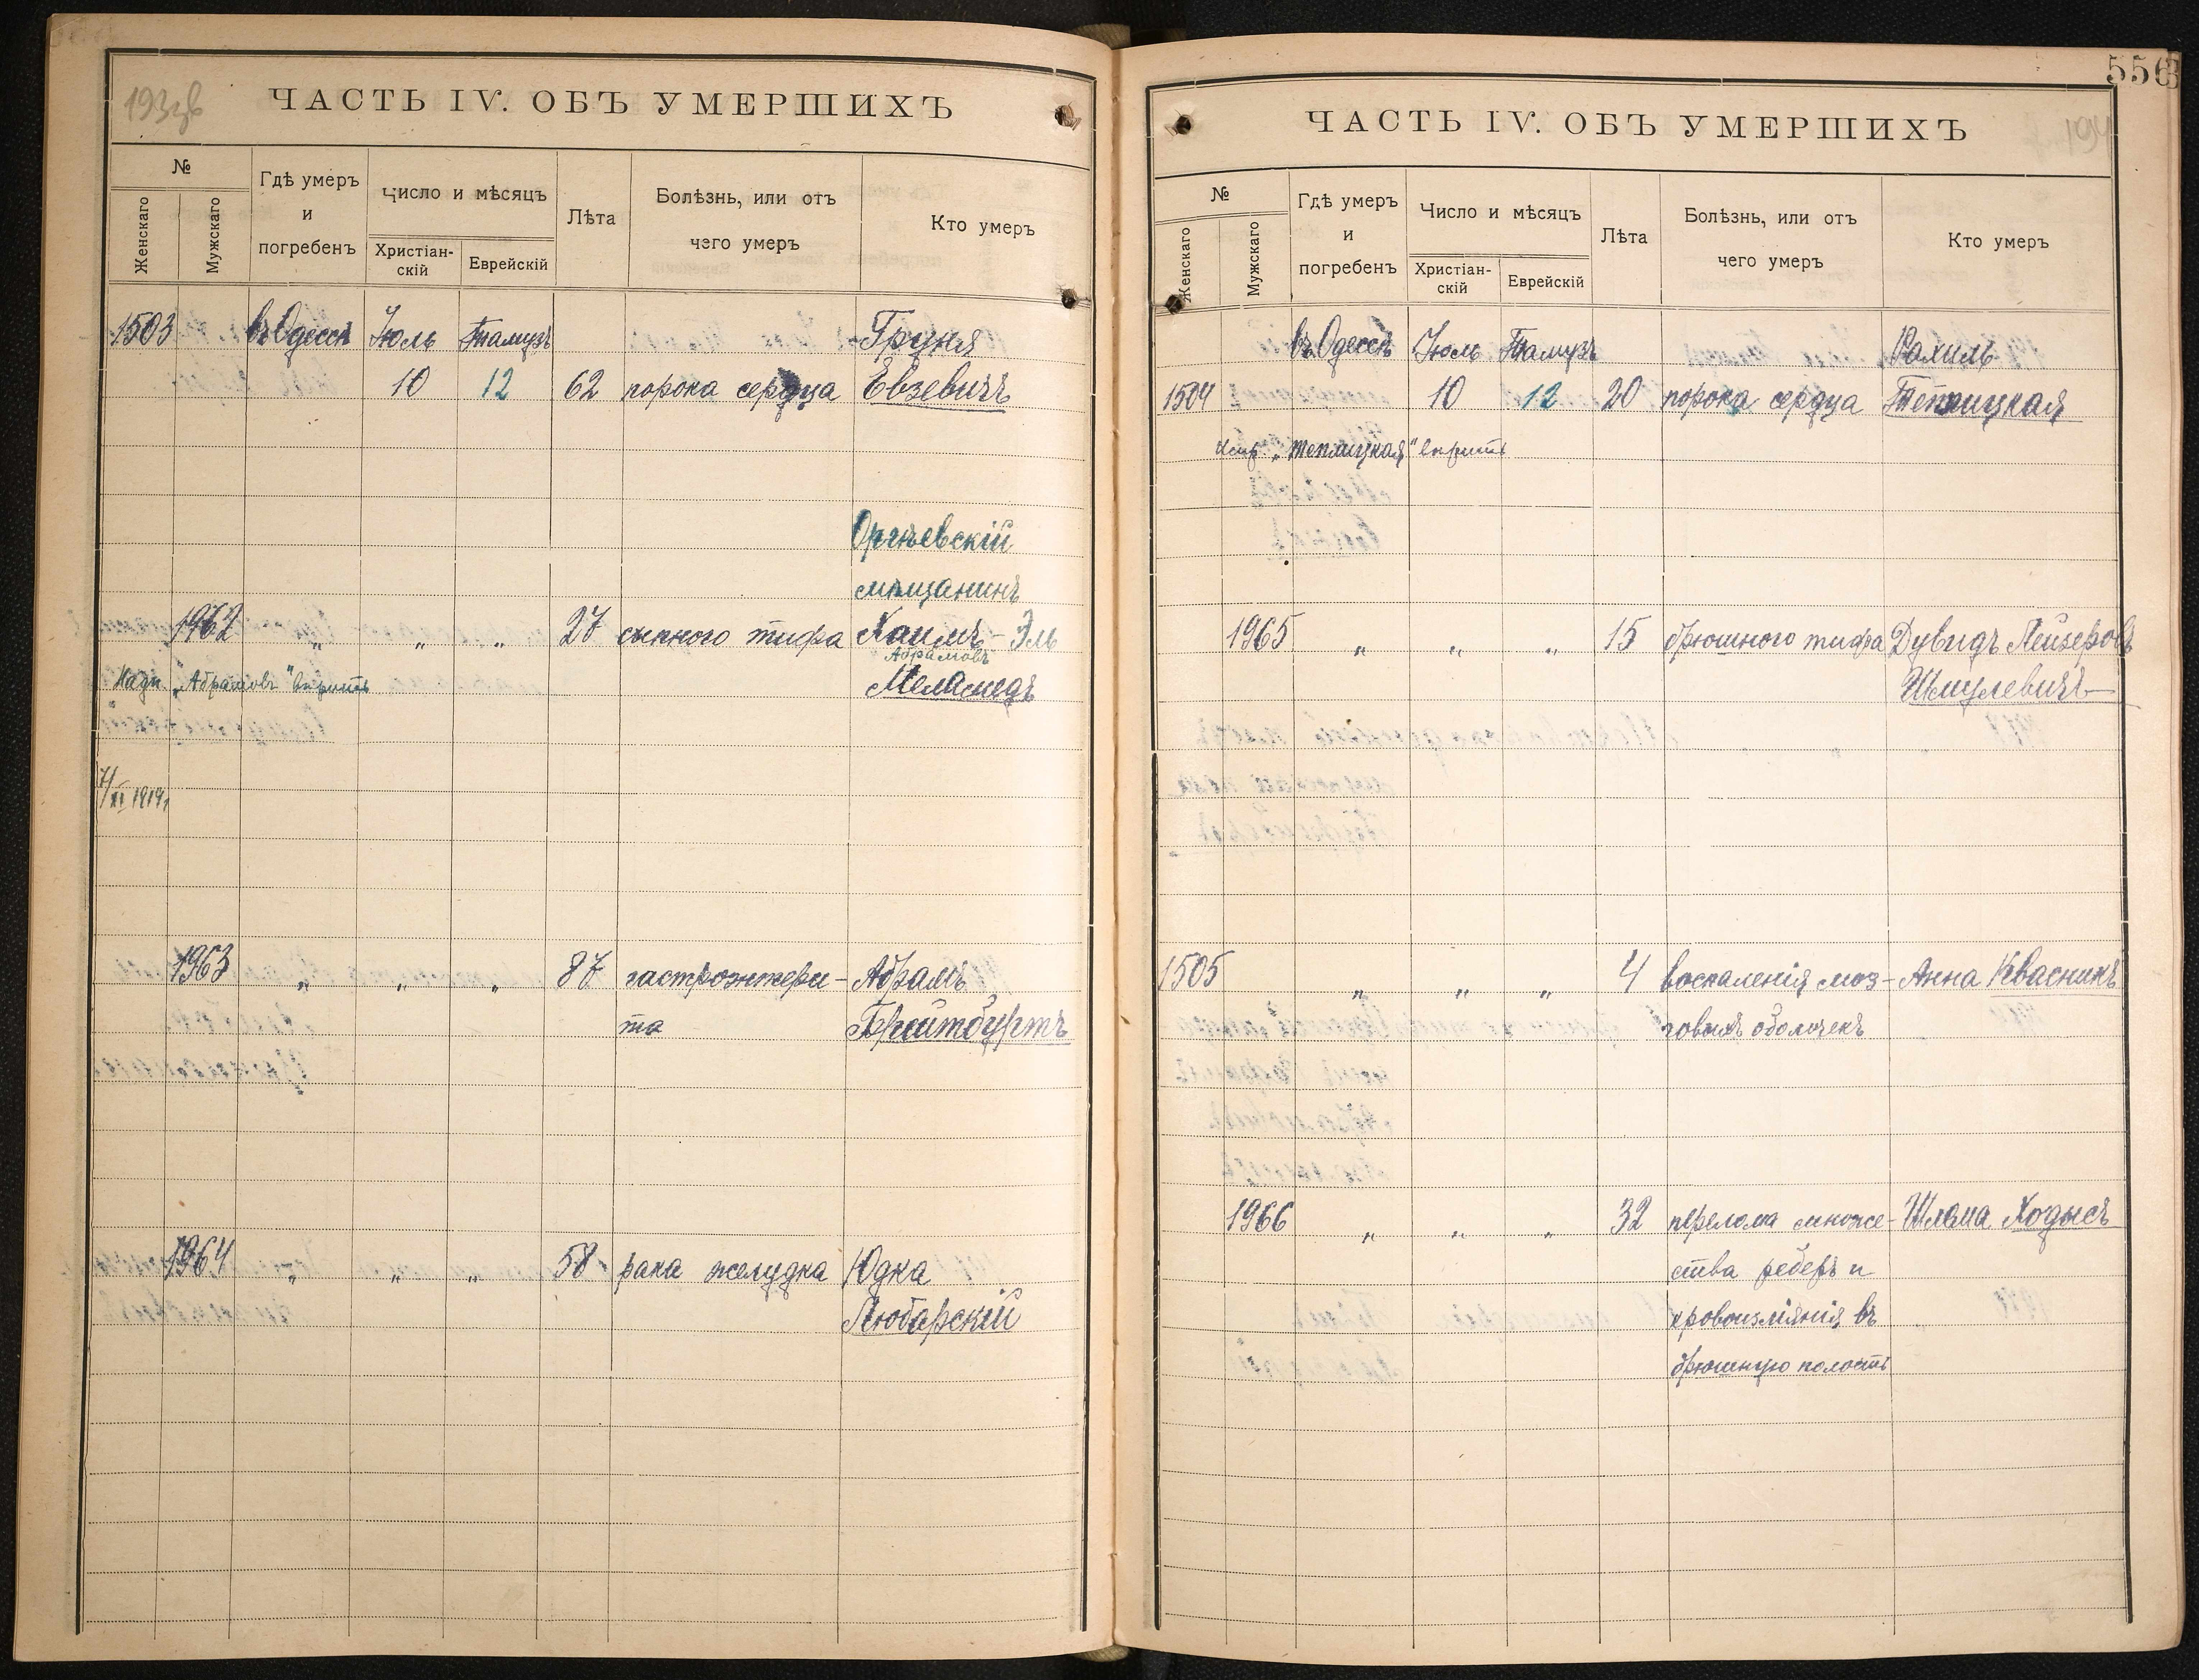 193 об
ЧАСТЬ IV. ОБЪ УМЕРШИХЪ
№
Женскаго
Мужскаго
Гдѣ умеръ
и
погребенъ
Число и мѣсяцъ
Христіан-
скій
Еврейскій
Лѣта
Болѣзнь, или отъ
чего умеръ
Кто умеръ
1503 въ Одессѣ Іюль Тамузъ Груня
10 12 62 порока сердца Евзевичъ
Оргѣевскій
мѣщанинъ
1962 " " " 27 сыпного тифа Хаимъ-Эль
Абрамовъ
Надп. "Абрамовъ" вѣрить Меламедъ
1963 " " " 87 гастроэнтери- Абрамъ
та Бройтбуртъ
1964 " " " 58 рака желудка Юдка
Любарскій
556
194
ЧАСТЬ IV. ОБЪ УМЕРШИХЪ
№
Женскаго
Мужскаго
Гдѣ умеръ
и
погребенъ
Число и мѣсяцъ
Христіан-
скій
Еврейскій
Лѣта
Болѣзнь, или отъ
чего умеръ
Кто умеръ
въ Одессѣ Іюль Тамузъ Рахиль
1504 10 12 20 порока сердца Теплицкая
"Теплицкая" вѣрить
1965 " " " 15 брюшного тифа Дувидъ Лейзеровъ
Шмулевичъ
1505 " " " 4 воспаленія моз- Анна Квасникъ
говыхъ оболочекъ
1966 " " " 32 перелома множе- Шлема Ходысъ
ства реберъ и
кровоизліянія въ
брюшную полость